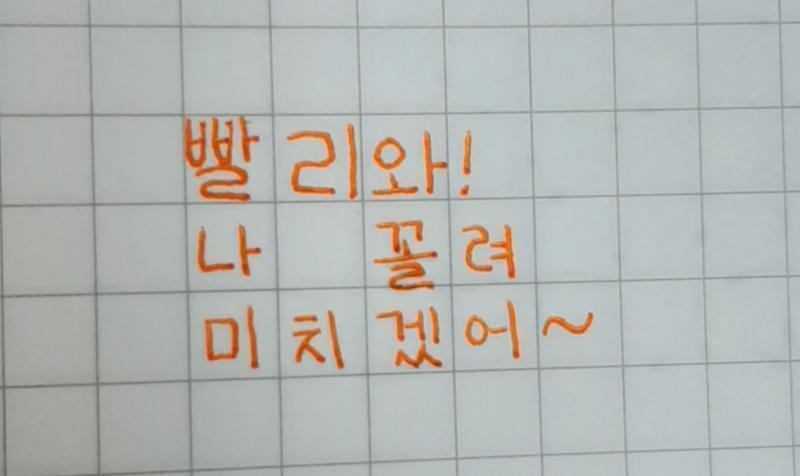 빨리와!
나 꼴려
미치겠어~